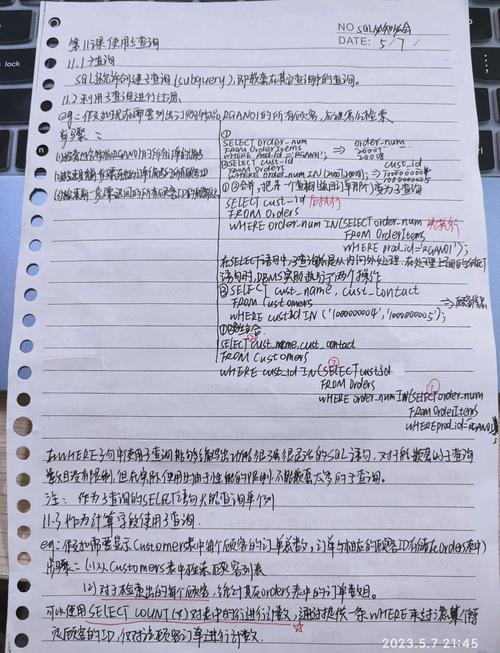 NO SQL必知必会
DATE: 5/7/
第11课使用子查询
11.1 子查询
SQL还允许创建子查询(subquery),即嵌套在其它查询中的查询。
11.2 利用子查询进行过滤
eg:假如现在需要列出订购物品RGAN01的所有顾客,应该怎样检索
步骤:
(1)检索包含物品RGAN01的所有订单的编号
(2)检索具有前一步骤列出的订单编号的所有顾客ID
(3)检索前一步骤返回的所有顾客ID的顾客信息
①
SELECT order_num
FROM OrderItems
WHERE prod_id='RGAN01';
⇒ order_num
20007
20008
②SELECT cust_id
FROM Orders
WHERE order_num IN (20007,20008);
cust_id
⇒ 1000000004
1000000005
①②合并,把第一个查询(返回订单号那个)变为子查询
SELECT cust_id 后执行
FROM Orders
WHERE order_num IN(SELECT order_num 先执行
FROM OrderItems
WHERE prod_id='RGAN01');
在SELECT语句中,子查询总是从内向外处理,在处理上面的SELECT
语句时,DBMS实际执行了两个操作
③SELECT cust_name, cust_contact
FROM Customers
WHERE cust_id IN ('1000000004','1000000005');
⇒顾客信息
①②③结合:
③
SELECT cust_name,cust_contact
FROM Customers
②
WHERE cust_id IN(SELECT cust_id
FROM Orders
①
WHERE order_num IN(SELECT order_num
FROM OrderItems
WHERE prod_id='RGAN01'
在WHERE子句中使用子查询能够编写出功能很强很灵活的SQL语句,对于能嵌套的子查询
数目没有限制,但在实际使用时由于性能的限制,不能嵌套太多的子查询。
注:作为子查询的SELECT语句只能查询单个列
11.3 作为计算字段使用子查询.
eg:假如需要显示Customers表中每个顾客的订单总数,订单与相应的顾客ID存储在Orders表中
步骤:(1)从Customers表中检索顾客列表
(2)对于检索出的每个顾客,统计其在orders表中的订单数目.
可以使用SELECT COUNT(*)对表中的行进行计数,通过提供一条WHERE来过滤某个特
定顾客的ID,仅对该顾客订单进行计数.
2023.5.7 21:45